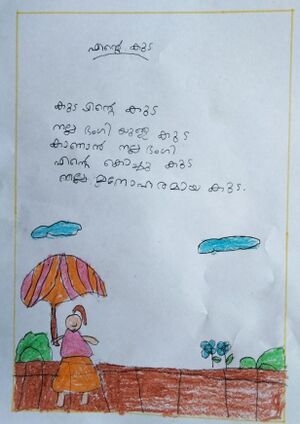 എന്റെ കുട
കുട എന്റെ കുട
നല്ല ഭംഗി യുള്ള കുട
കാണാൻ നല്ല ഭംഗി
എന്റെ കൊച്ചു കുട
നല്ല മനോഹരമായ കുട.